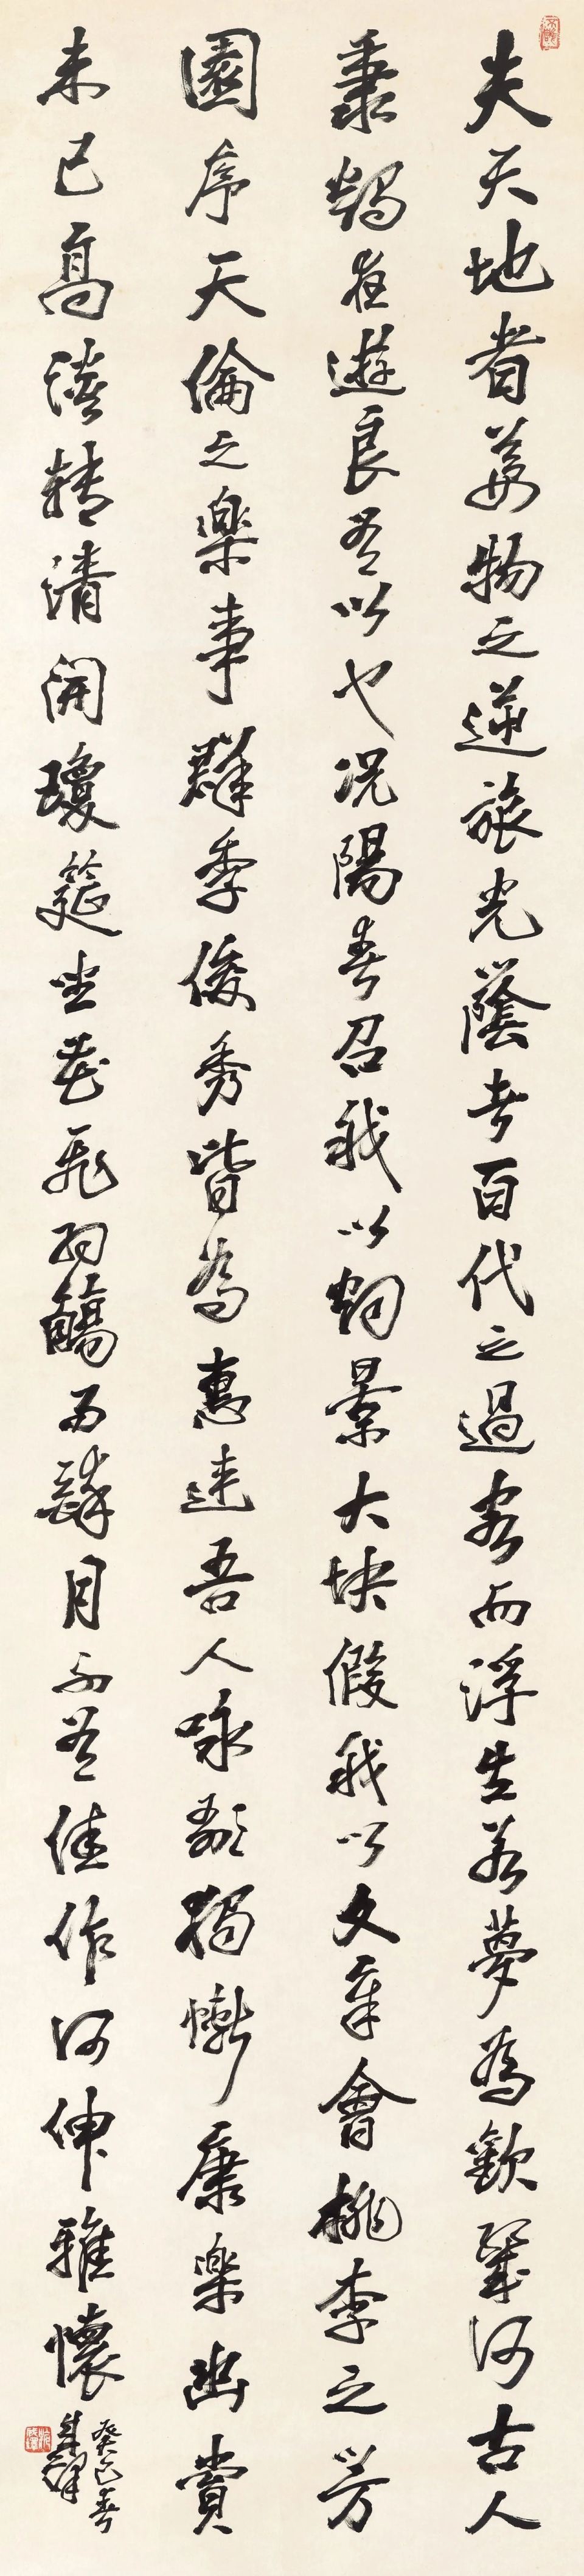 夫天地者萬物之逆旅光蔭者百代之過客而浮生若夢為歡幾何古人
秉燭夜遊良有以也況陽春召我以烟景大塊假我以文章會桃李之芳
園序天倫之楽事群季俊秀皆為惠連吾人咏歌獨慚康楽幽賞
未已高談轉清開瓊筵坐花飛羽觴而醉月不有佳作何伸雅懷
癸巳春